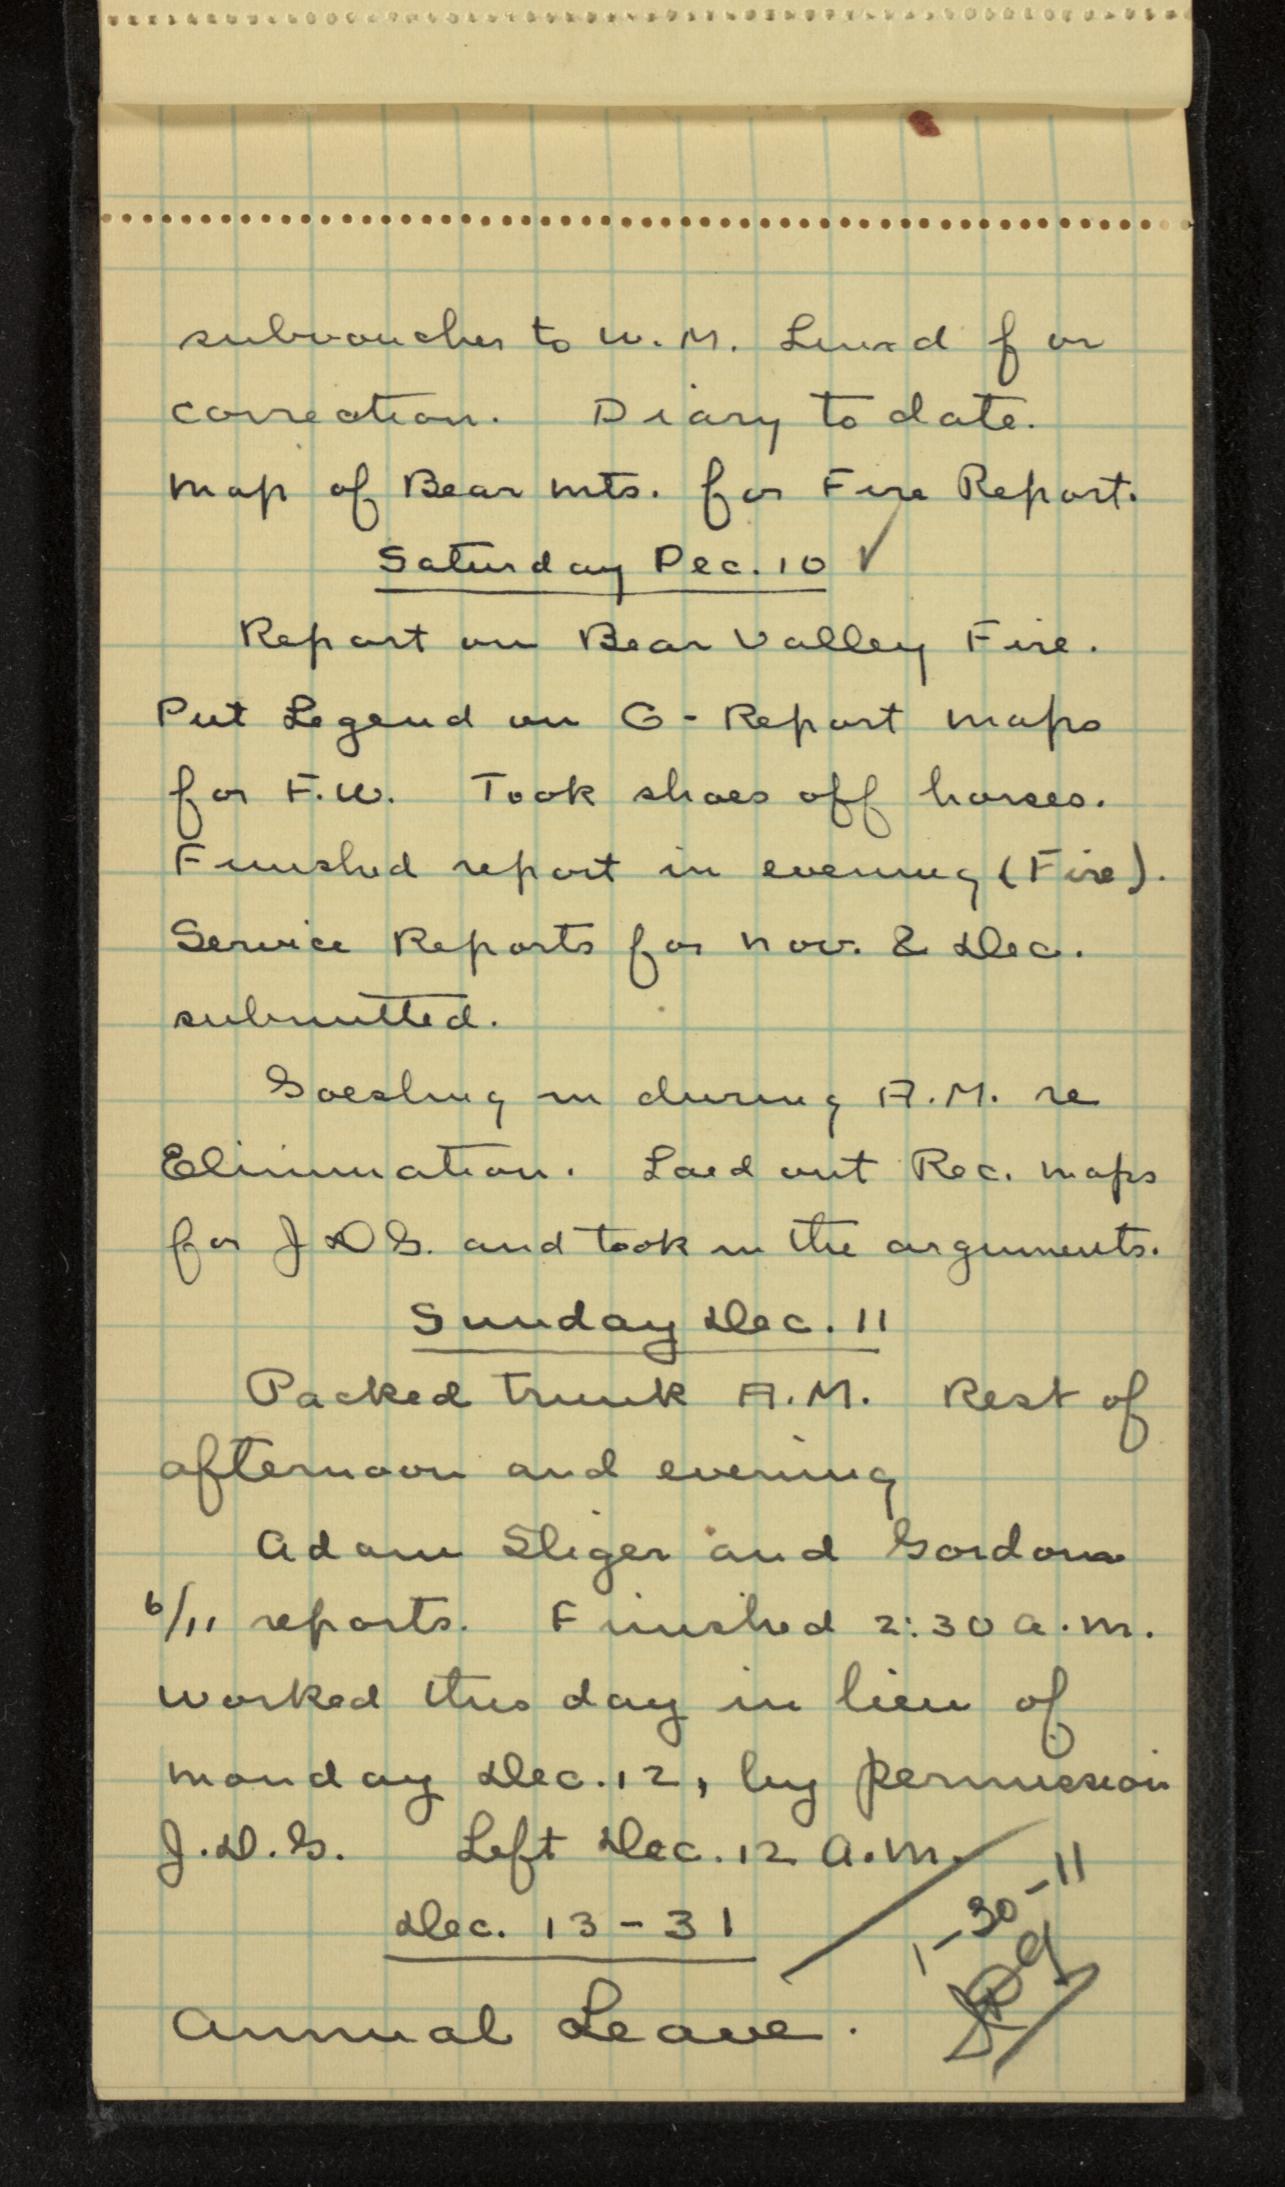 subvoucher to W. M. Lund for
correction. Diary to date.
Map of Bear Mts. for Fire Report.
Saturday Dec. 10 ✓
Report on Bear Valley Fire.
Put Legend on G-Report maps
for F.W. Took shoes off horses.
Finished report in evening (Fire).
Service Reports for Nov. & Dec.
submitted.
Goesling in during A.M. re
Elimination. Laid out Rec. maps
for JDG. and took in the arguments.
Sunday Dec. 11
Packed trunk A.M. Rest of
afternoon and evening
Adam Sliger and Gordon
6/11 reports. Finished 2:30 a.m.
Worked this day in lieu of
Monday Dec. 12, by permission
J.D.G. Left Dec. 12 A.M.
Dec. 13-31
1-30-11
Annual Leave.